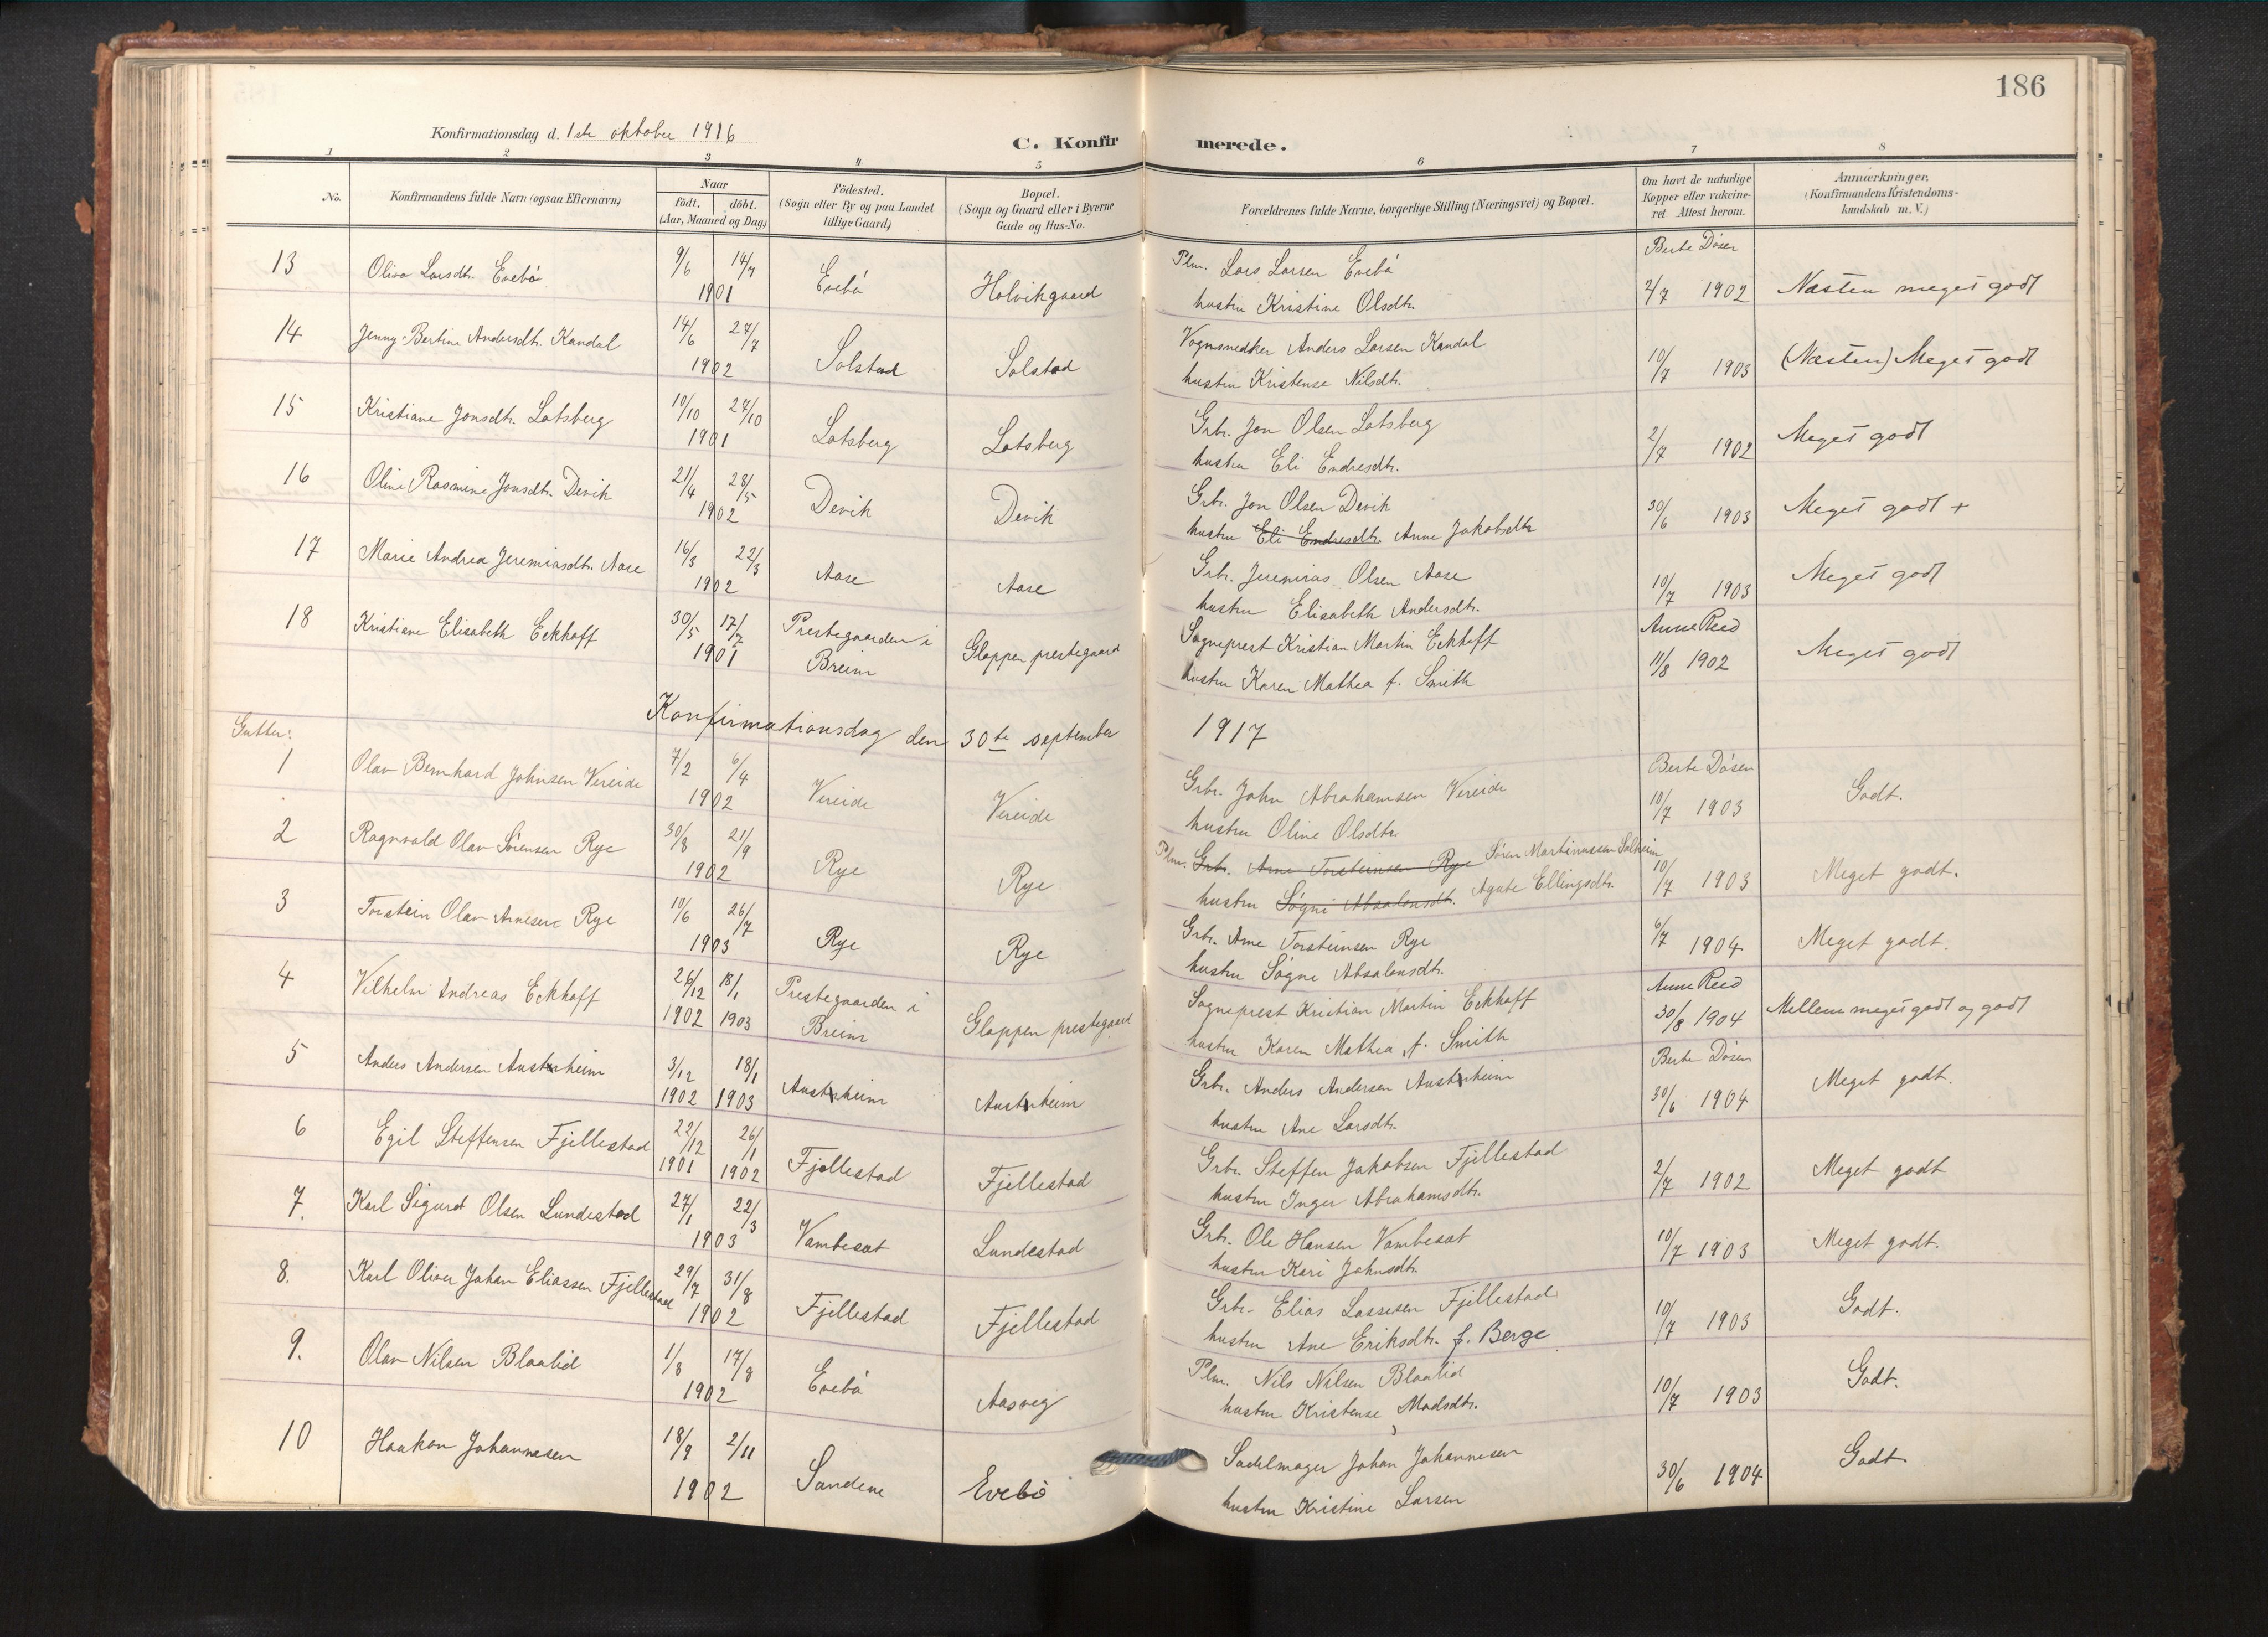 186
Konfirmationsdag d. 1ste oktober 1916
C. Konfirmerede.
1 2 3 4 5 6 7 8
No.
Konfirmandens fulde Navn (ogsaa Efternavn)
Naar
födt. döbt.
(Aar, Maaned og Dag)
Födested.
(Sogn eller By og paa Landet
tillige Gaard)
Bopæl.
(Sogn og Gaard eller i Byerne
Gade og Hus-No.
Forældrenes fulde Navne, borgerlige Stilling (Næringsvei) og Bopæl.
Om havt de naturlige
Kopper eller vakcine-
ret. Attest herom.
Anmærkninger.
(Konfirmandens Kristendoms-
kundskab m. V.)
13 Oliva Larsdtr. Evebö 9/6 14/7 1901 Evebö Holvikgaard
Plm. Lars Larsen Evebö
hustru Kristine Olsdtr.
Berte Dösen
2/7 1902 Næsten meget godt
14 Jenny Bertine Andersdtr. Kandal 14/6 27/7 1902 Solstad Solstad
Vognsnedker Anders Larsen Kandal
hustru Kristense Nilsdtr.
10/7 1903 (Næsten) Meget godt
15 Kristiane Jonsdtr. Lotsberg 10/10 27/10 1901 Lotsberg Lotsberg
Grbr. Jon Olsen Lotsberg
hustru Eli Endresdtr.
2/7 1902 Meget godt
16 Oline Rasmine Jonsdtr. Devik 21/4 28/5 1902 Devik Devik
Grbr. Jon Olsen Devik
hustru Eli Endresdtr. Anne Jakobsdtr
30/6 1903 Meget godt +
17 Marie Andrea Jeremiasdtr. Aase 16/3 22/3 1902 Aase Aase
Grbr. Jeremias Olsen Aase
hustru Elisabeth Andersdtr.
10/7 1903 Meget godt
18 Kristiane Elisabeth Eckhoff 30/5 17/7 1901 Prestegaarden i Breim Gloppen prestegaard
Sogneprest Kristian Martin Eckhoff
hustru Karen Mathea f. Smith
Anne Reed
11/8 1902 Meget godt
Konfirmationsdag den 30te september 1917
Gutter:
1 Olav Bernhard Johnsen Vereide 7/2 6/4 1902 Vereide Vereide
Grbr. John Abrahamsen Vereide
hustru Oline Olsdtr.
Berte Dösen
10/7 1903 Godt.
2 Ragnvald Olav Sörensen Rye 30/8 21/9 1902 Rye Rye
Plm. Grbr. Arne Torsteinsen Rye Sören Martinussen Solheim
hustru Søgni Absalonsdt. Agate Ellingsdtr.
10/7 1903 Meget godt.
3 Torstein Olav Arnesen Rye 10/6 26/7 1903 Rye Rye
Grbr. Arne Torsteinsen Rye
hustru Søgne Absalonsdtr.
6/7 1904 Meget godt.
4 Vilhelm Andreas Eckhoff 26/12 1902 18/1 1903 Prestegaarden i Breim Gloppen prestegaard
Sogneprest Kristian Martin Eckhoff
hustru Karen Mathea f. Smith
Anne Reed
30/8 1904 Mellem meget godt og godt
5 Anders Andersen Austrheim 3/12 1902 18/1 1903 Austrheim Austrheim
Grbr. Anders Andersen Austrheim
hustru Ane Larsdtr.
Berte Dösen
30/6 1904 Meget godt.
6 Egil Steffensen Fjellestad 22/12 1901 26/1 1902 Fjellestad Fjellestad
Grbr. Steffen Jakobsen Fjellestad
hustru Inger Abrahamsdtr.
2/7 1902 Meget godt
7. Karl Sigurd Olsen Lundestad 27/1 22/3 1903 Vambesæt Lundestad
Grbr. Ole Hansen Vambesæt
hustru Kari Johnsdtr.
10/7 1903 Meget godt.
8. Karl Oliver Johan Eliassen Fjellestad 29/7 31/8 1902 Fjellestad Fjellestad
Grbr. Elias Lassesen Fjellestad
hustru Ane Eriksdtr. f. Berge
10/7 1903 Godt.
9. Olav Nilsen Blaalid 1/8 17/8 1902 Evebö Aasveg
Plm. Nils Nilsen Blaalid
hustru Kristense Madsdtr.
10/7 1903 Godt.
10 Haakon Johannesen 18/9 2/11 1902 Sandene Evebö
Sadelmager Johan Johannesen
hustru Kristine Larsen
30/6 1904 Godt